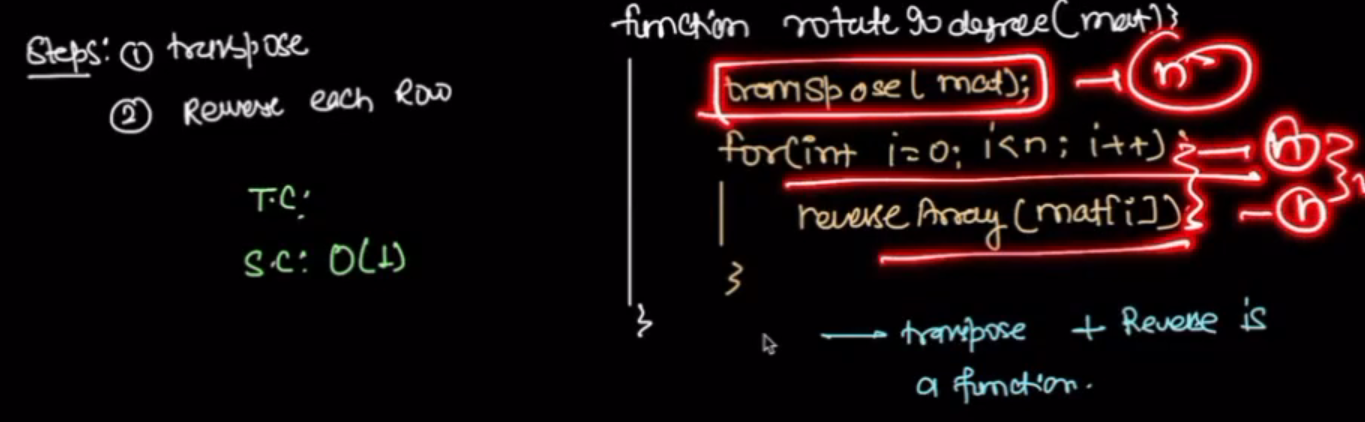 Steps: ① transpose
② Reverse each Row
T.C:
S.C: O(1)
function rotate 90 degree(mat){
transpose(mat); → n²
for(int i=0; i<n; i++){ — n
reverse Array (mat[i]); — n
}
}
→ transpose + Reverse is
a function.